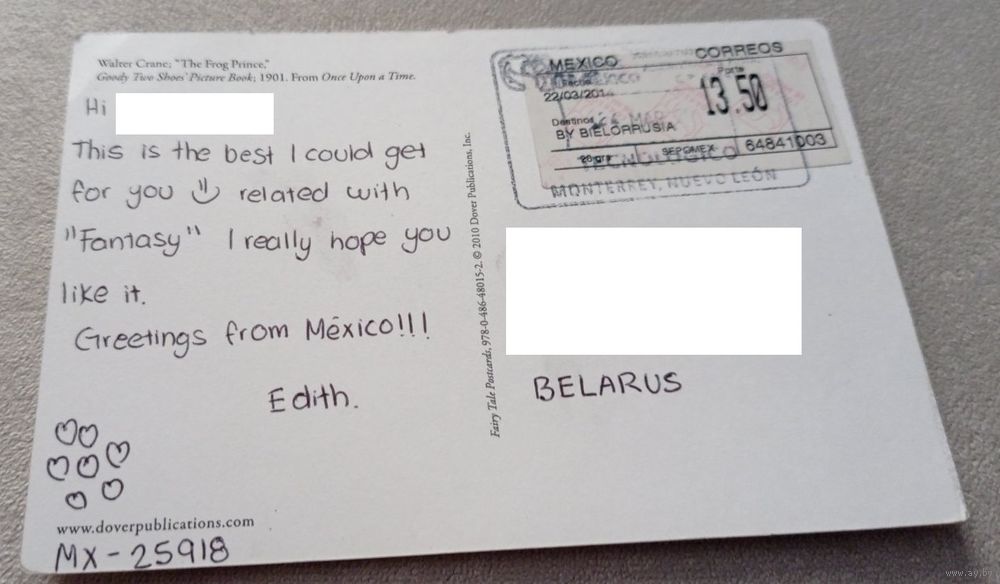 Walter Crane; "The Frog Prince,"
Goody Two Shoes' Picture Book; 1901. From Once Upon a Time.
Hi
This is the best I could get
for you related with
"Fantasy" I really hope you
like it.
Greetings from México!!!
Edith.
www.doverpublications.com
MX-25918
Fairy Tale Postcards, 978-0-486-48015-2. © 2010 Dover Publications, Inc.
MEXICO CORREOS
Porte
22/03/201
13.50
Destino
BY BIELORRUSIA
20 grs SEPOMEX 64841003
TECNOLOGICO
MONTERREY, NUEVO LEÓN
BELARUS
www.ay.by